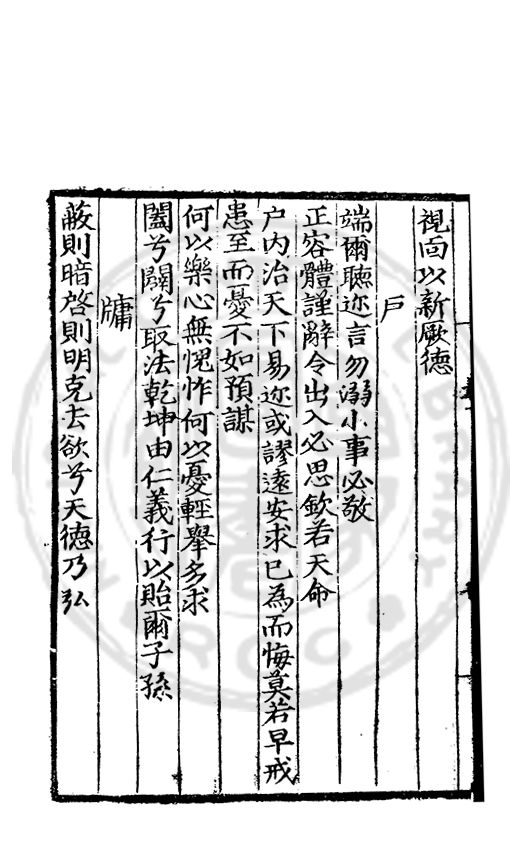 視面以新厥德
戶
端爾聽邇言勿溺小事必敬
正容體謹辭令出入必思欽若天命
户內治天下易邇或謬遠安求已為而悔莫若早戒
患至而憂不如預謀
何以樂心無愧怍何以憂輕舉多求
闔兮闢兮取法乾坤由仁義行以貽爾子孫
牗
蔽則暗啓則明克去欲兮天德乃弘